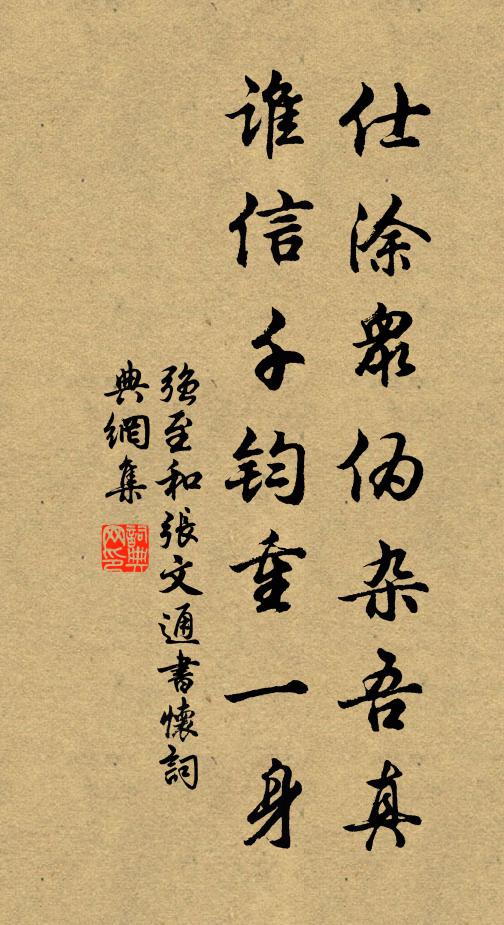 仕涂众伪杂吾真
谁信千钧重一身
强至和張文通書懷詞
典網集
詞典网印